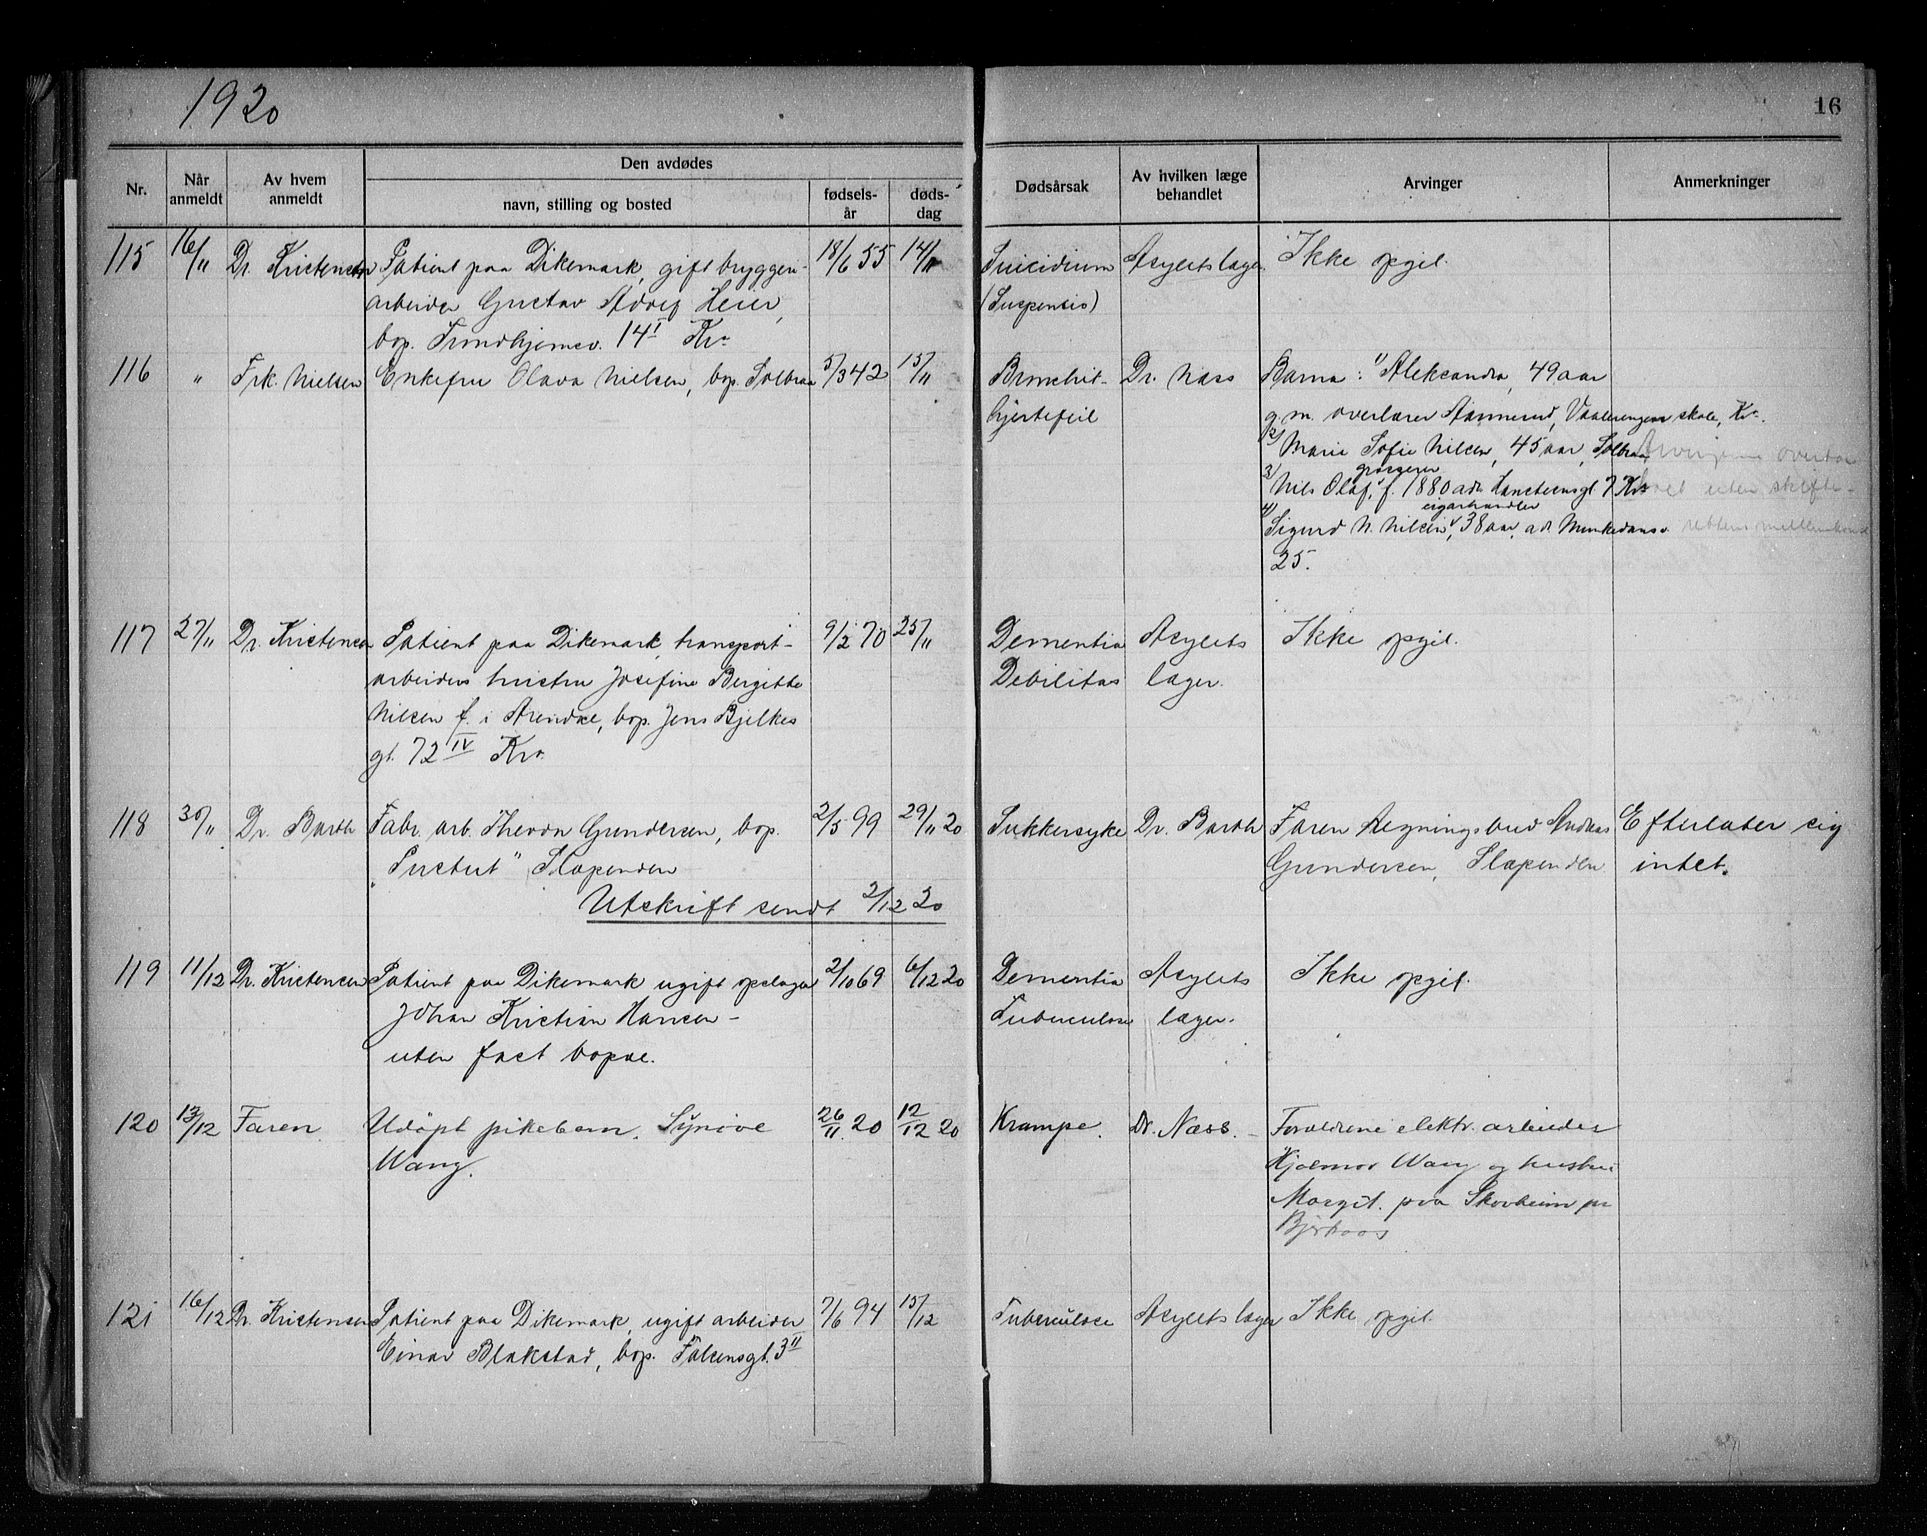 1920
16
Nr.
Når anmeldt
Av hvem anmeldt
Den avdødes
navn, stilling og bosted
fødsels-år
døds-dag
Dødsårsak
Av hvilken læge behandlet
Arvinger
Anmerkninger
115 16/11 Dr. Kristensen Patient paa Dikemark, gift bryggeri- 18/6 55 14/11 Suicidium Asylets læger. Ikke opgit.
arbeider Gustav Adolf Heier, (Suspensio)
bop. Trondhjemsv. 14 I Kr.a
116 " Frk. Nielsen Enkefru Olava Nielsen, bop. Solbraa 5/3 42 15/11 Bronchit- Dr. Næss Barna: 1) Aleksandra, 49 aar
hjertefeil g. m. overlærer Aamerud, Vaalerengens skole, Kr.a
2) Marie Sofie Nilsen, 45 aar, Solbraa Arvingene overtar
grosserer
3) Nils Olaf, f. 1880 adr. Hansteensgt 7 Kr.a boet uten skifte-
cigarhandler
4) Sigurd N. Nilsen, 38 aar, adr. Munkedamsv. rettens mellemkomst
25.
117 27/11 Dr. Kristensen Patient paa Dikemark, transport- 9/2 70 25/11 Dementia Asylets Ikke opgit.
arbeiders hustru Josefine Bergitte Debilitas læger.
Nilsen f. i Arendal, bop. Jens Bjelkes
gt. 72 IV Kr.a
118 30/11 Dr. Barth Fabr. arb. Theodor Gundersen, bop. 2/5 99 29/11 20 Sukkersyke Dr. Barth Faren Regningsbud Andreas Efterlater sig
" Slæpenden Gundersen, Slæpenden intet.
Utskrift sendt 2/12 20
119 11/12 Dr. Kristensen Patient paa Dikemark ugift opslager 2/10 69 6/12 20 Dementia Asylets Ikke opgit.
Johan Kristian Hansen - Tuberculose læger.
uten fast bopæl.
120 13/12 Faren. Udøpt pikebarn. Synøve 26/11 20 12/12 20 Krampe. Dr. Næss. - Forældrene elektr. arbeider
Wang. Hjalmar Wang og hustru
Margit. paa Skovheim pr
121 16/12 Dr. Kristensen Patient paa Dikemark, ugift arbeider 7/6 94 15/12 Tuberculose Asylets læger Ikke opgit.
Einar Blakstad, bop. Falsensgt. 3 II